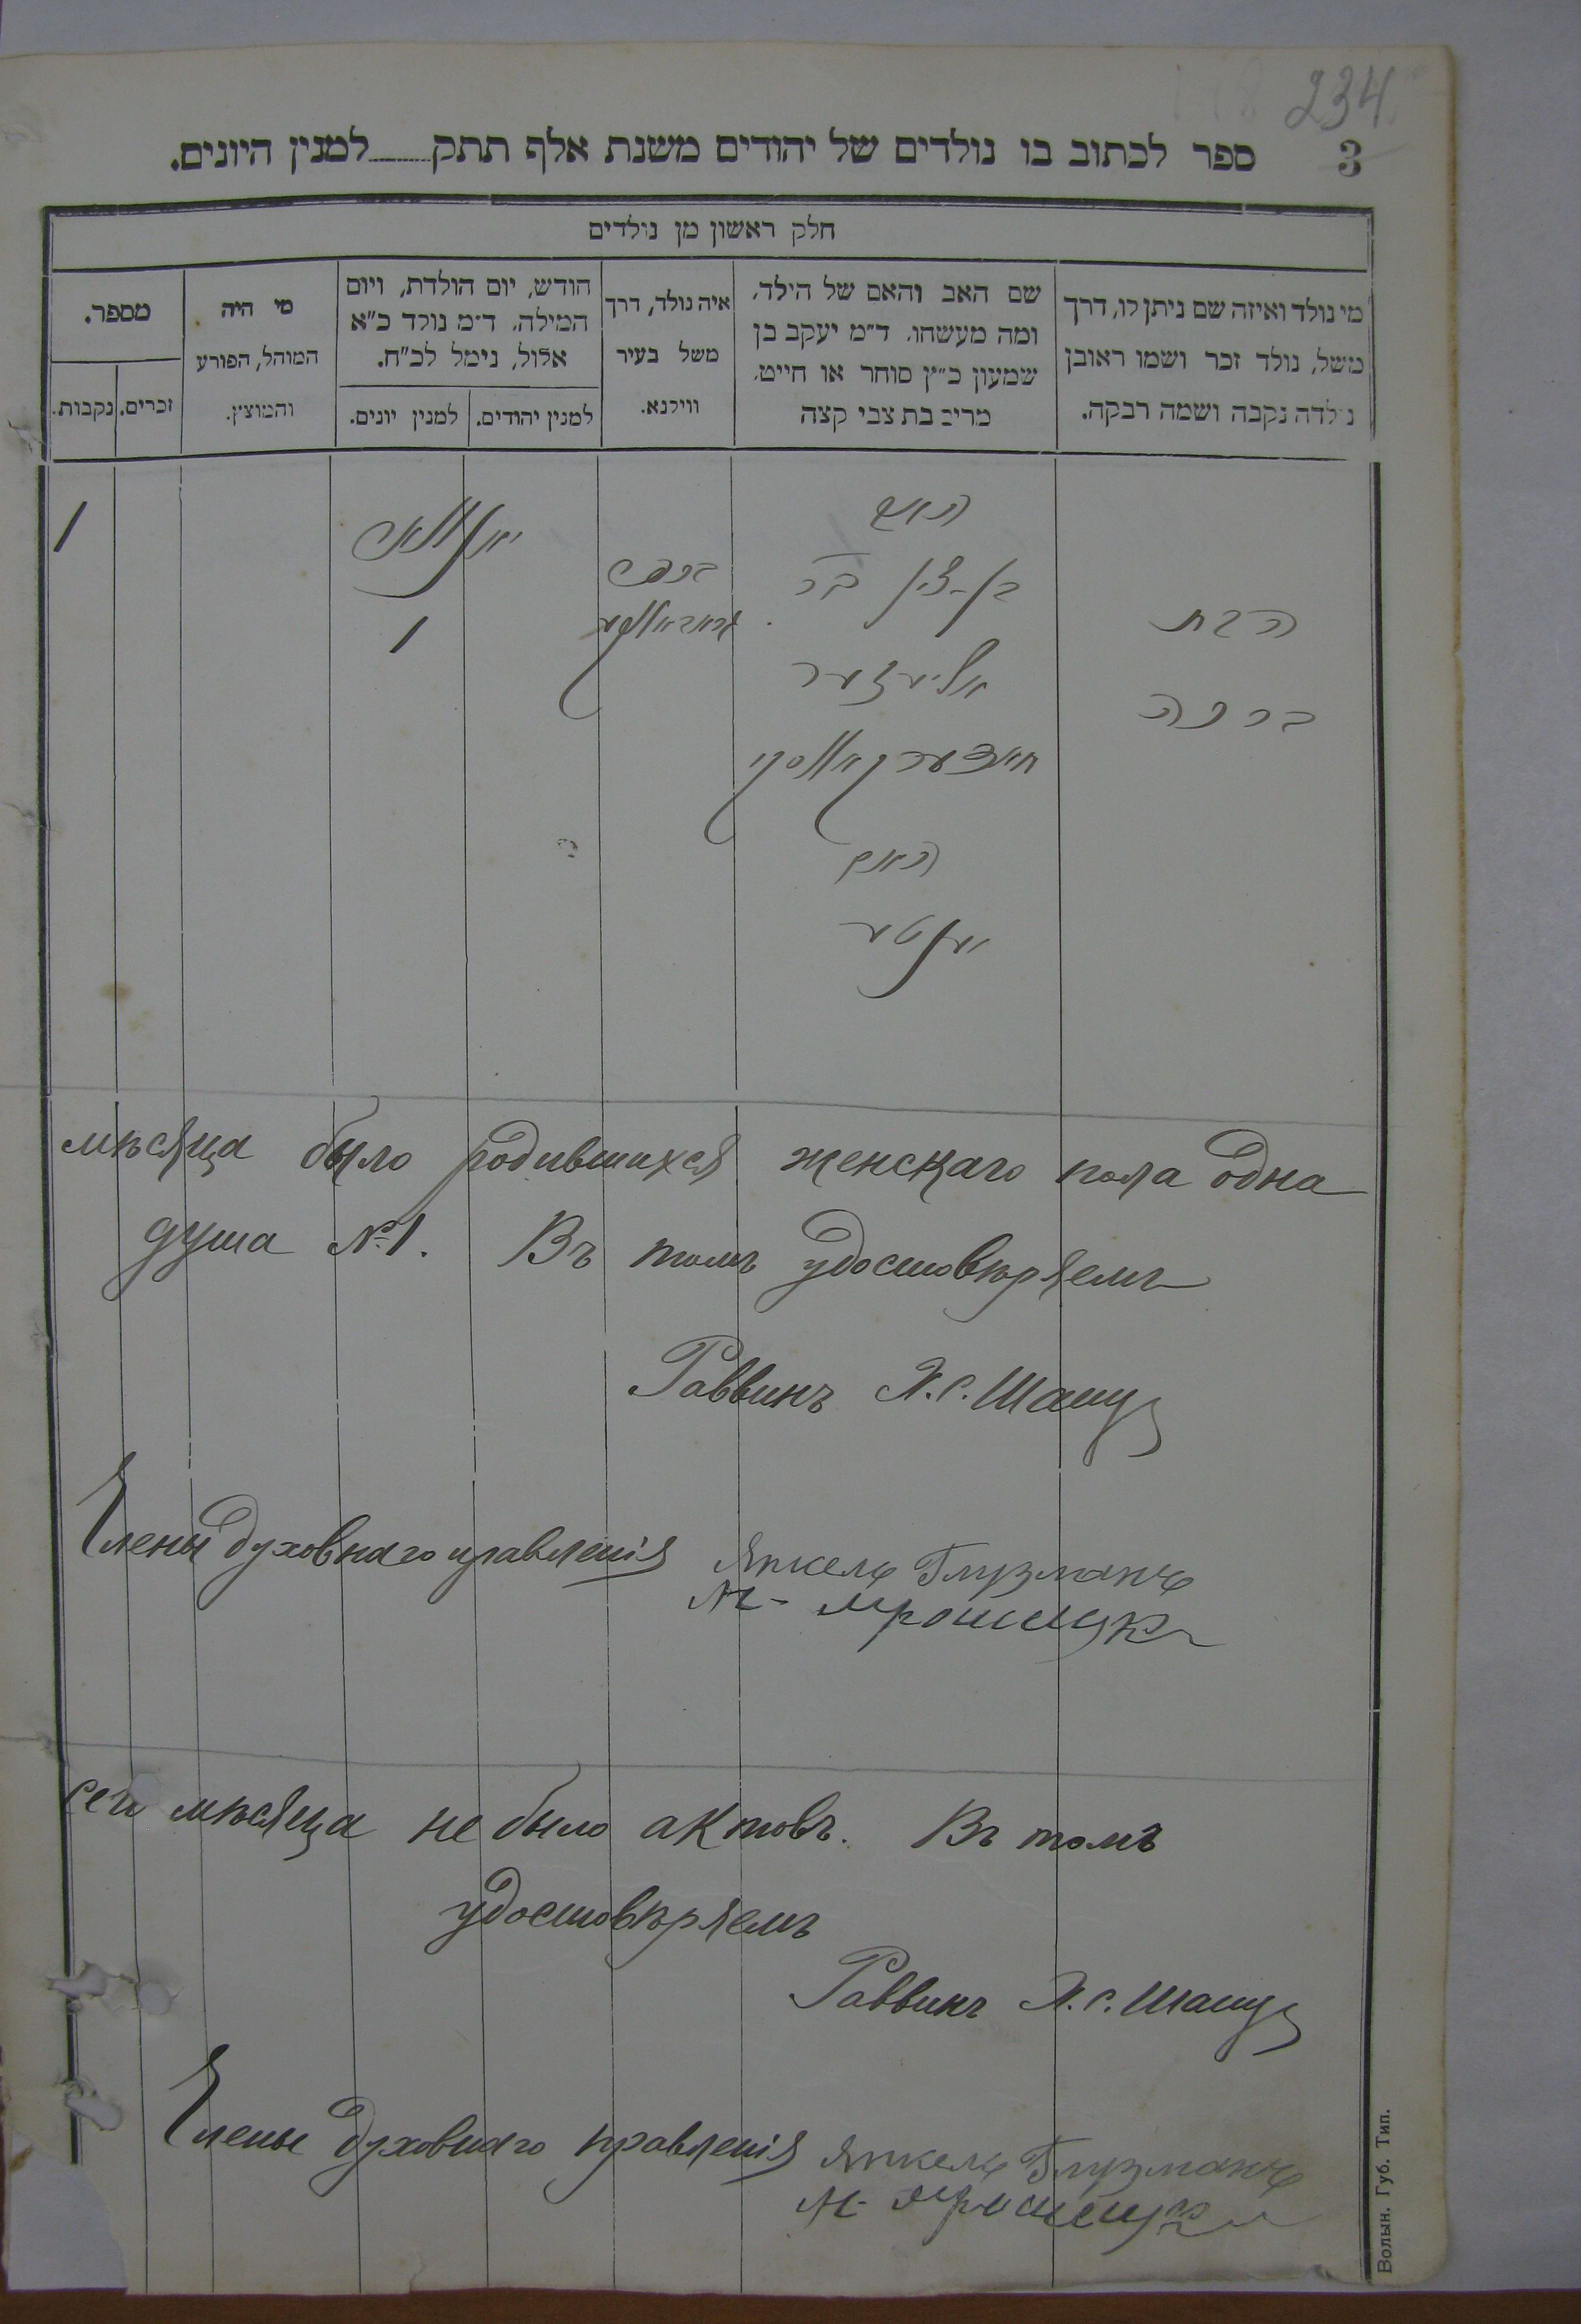 234
3 ספר לכתוב בו נולדים של יהודים משנת אלף תתק למנין היונים.
חלק ראשון מן נולדים
מי נולד ואיזה שם ניתן לו, דרך
משל, נולד זכר ושמו ראובן
נולדה נקבה ושמה רבקה.
שם האב והאם של הילד,
ומה מעשהו. ד״מ יעקב בן
שמעון כ״ץ סוחר או חייט.
מרים בת צבי קצה
איה נולד, דרך
משל בעיר
ווילנא.
חודש, יום הולדת, ויום
המילה. ד״מ נולד כ״א
אלול, נימל לכ״ח.
למנין יהודים.
למנין יונים.
מי היה
המוהל, הפורע
והמוצץ.
מספר.
זכרים.
נקבות.
הבת
ברכה
האב
בן-ציון בר
אליעזר
האם
יענטע
1
1
мѣсяца было родившихся женскаго пола одна
душа №1. Въ томъ удостовѣряемъ
Раввинъ Х.С. Шапу
Члены духовнаго правленія Янкель Глузманъ
сего мѣсяца не было актовъ. Въ томъ
удостовѣряемъ
Раввинъ Х.С. Шапу
Члены духовнаго правленія Янкель Глузманъ
Волын. Губ. Тип.